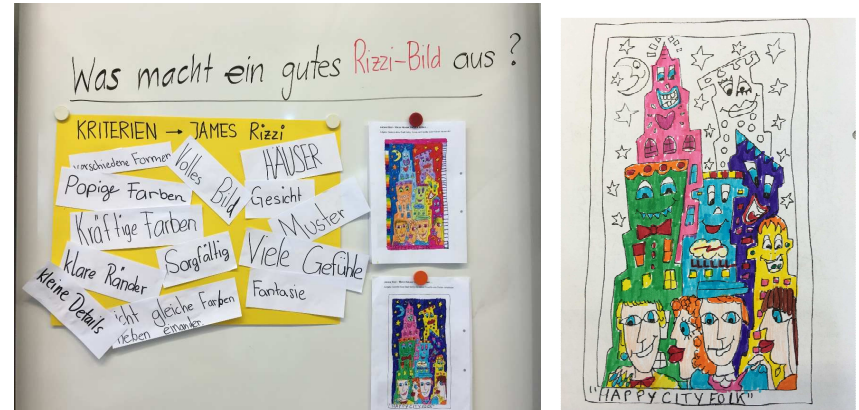 Was macht ein gutes Rizzi-Bild aus?
KRITERIEN → JAMES Rizzi
verschiedene Formen
Volles Bild
HÄUSER
Popige Farben
Gesicht
Muster
Kräftige Farben
Sorgfältig
Viele Gefühle
klare Ränder
Fantasie
kleine Details
icht gleiche Farben
neben einander
"HAPPY CITY FOLK"